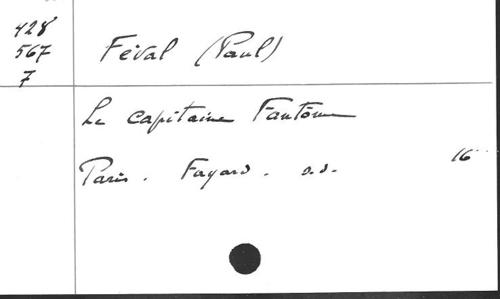 428
567
7
Féval (Paul)
Le capitaine Fantôme
Paris. Fayard. s.d. 16